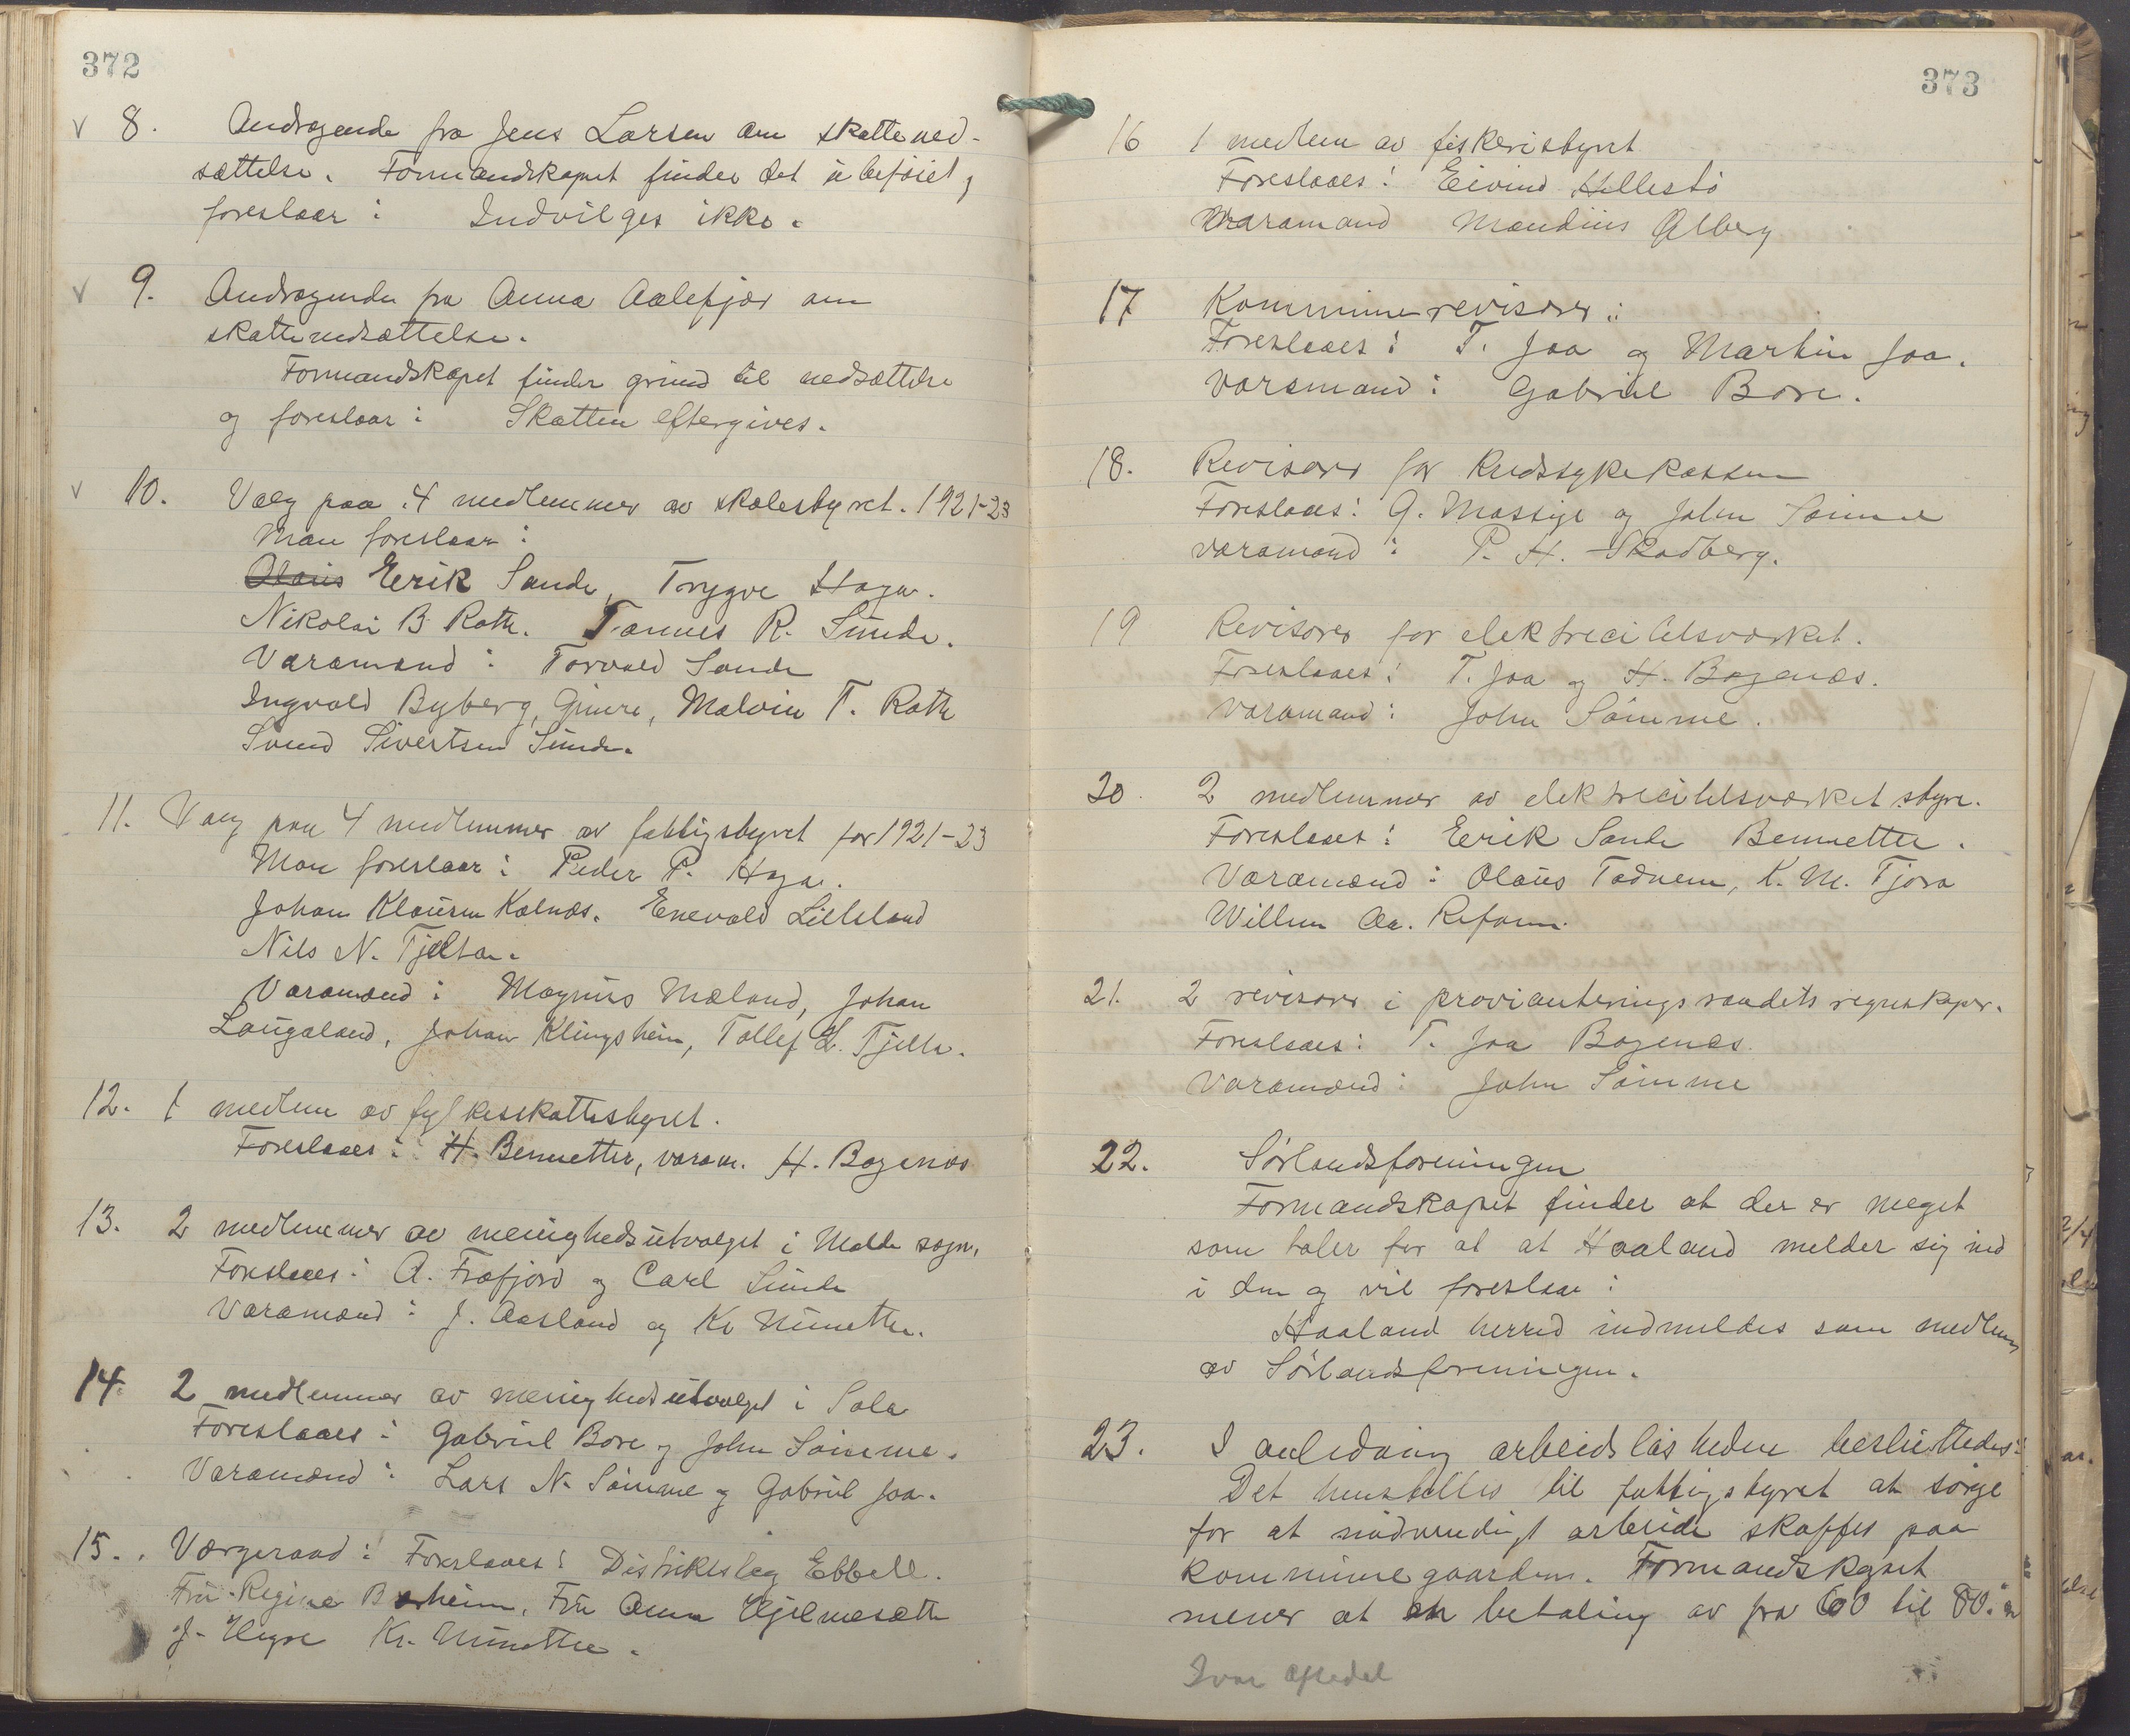 372
v 8. Andragende fra Jens Larsen om skattened-
sættelse. Formandskapet finder det ubeføiet,
foreslaar: Indvilges ikke.
v 9. Andragende fra Anna Aalefjær om
skattenedsættelse.
Formandskapet finder grund til nedsættelse
og foreslaar: Skatten eftergives.
v 10. Valg paa 4 medlemmer av skolestyret. 1921-23
Man foreslaar:
Olaus Eerik Sande, Trygve Haga.
Nikolai B Roth. Tønnes R. Sunde.
Varamænd: Torvald Sande
Ingvald Byberg, Gimre, Malvin T. Roth
Svend Sivertsen Sunde.
11. Valg paa 4 medlemmer av fattigstyret for 1921-23
Man foreslaar: Peder P. Haga.
Johan Klausen Kolnæs. Enevald Lilleland
Nils N. Tjelta.
Varamænd: Magnus Mæland, Johan
Laugaland, Johan Klingsheim, Tollef L. Tjelta.
12. 1 medlem av fylkesskattestyret.
Foreslaaes: H. Bennetter, varam. H. Bogenæs
13. 2 medlemmer av menighedsutvalget i Malde sogn.
Foreslaaes: A. Frafjord og Carl Sunde
Varamænd: J. Aasland og Kr Nunetter.
14. 2 medlemmer av menighedsutvalget i Sola
Foreslaaes: Gabriel Bore og John Sømme.
Varamænd: Lars N. Sømme og Gabriel Joa.
15. Værgeraad: Foreslaaes: Distriktslæg Ebbell.
Fru Regine Borheim. Fru Anna Hjelmesæth
J. Heyre Kr. Nunetter.
373
16 1 medlem av fiskeristyret
Foreslaaes: Eivind Hellestø
Varamand Mandius Ølberg
17 Kommunerevisorer:
Foreslaaes: T. Joa og Martin Joa.
Varamand: Gabriel Bore.
18. Revisorer for kredssykekassen
Foreslaaes: G. Mossige og John Sømme
varamand: P. H. Skadberg.
19 Revisorer for elektricitetsværket.
Foreslaaes: T. Joa og H. Bogenæs.
Varamand: John Sømme.
20. 2 medlemmer av elektricitetsværket styre.
Foreslaaes: Eerik Sande Bennetter.
Varamænd: Olaus Todnem, K. M. Tjora
Willum Aa. Reform.
21. 2 revisorer i provianteringsraadets regnskaper.
Foreslaaes: T. Joa Bogenæs.
Varamænd: John Sømme
22. Sørlandsforeningen
Formandskapet finder at der er meget
som taler for at at Haaland melder sig ind
i den og vil foreslaa:
Haaland herred indmeldes som medlem
av Sørlandsforeningen.
23. I anledning arbeidsløsheden besluttedes:
Det henstilles til fattigstyret at sørge
for at nødvendigt arbeide skaffes paa
kommunegaarden. Formandskapet
mener at en betaling av fra 60 til 80. ø
Ivar Aftedal